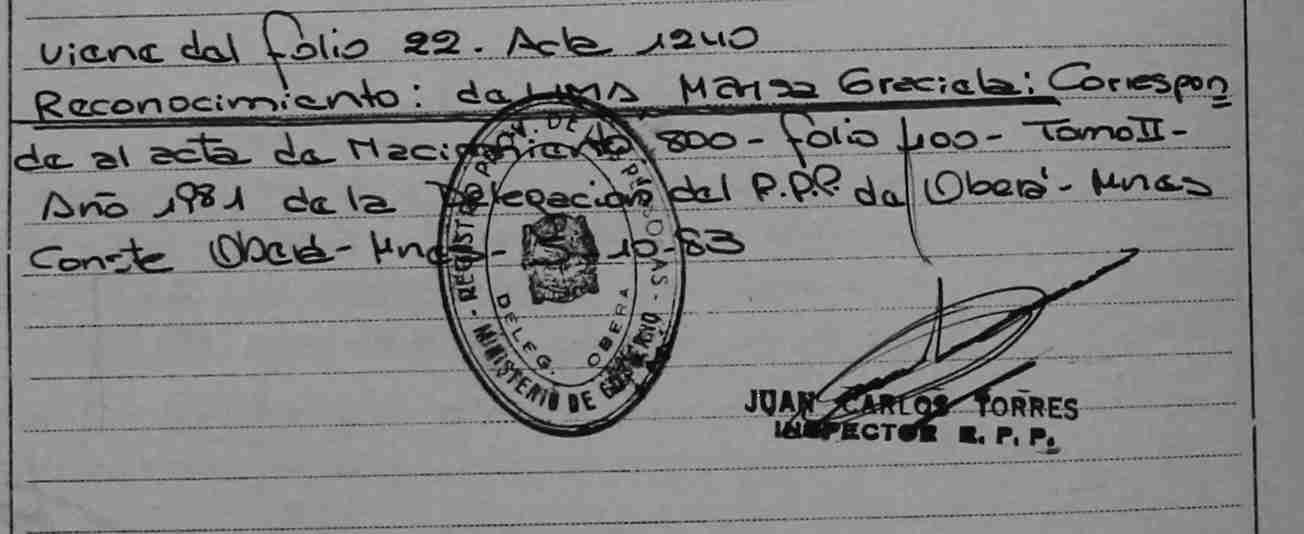 viene del folio 22. Acta 1240
Reconocimiento: de LIMA Marisa Graciela: Correspon
de al acta de Nacimiento 800 - folio 400 - Tomo II -
Año 1981 de la Delegacion del R.P.P. de Oberá - Mnes
Conste Oberá - Mnes - 5 10-83
REGISTRO PROV. DE LAS PERSONAS - MINISTERIO DE GOBIERNO
DELEG. OBERA
JUAN CARLOS TORRES
INSPECTOR R. P. P.